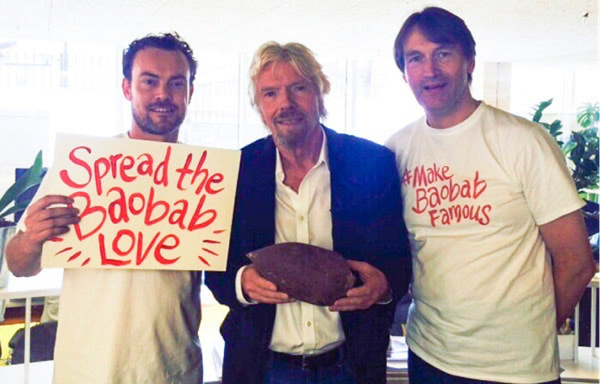 Spread the
Baobab
LOVE
#Make
Baobab
Famous